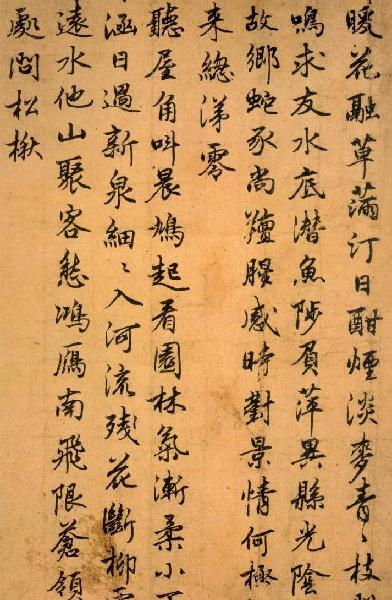 暖花融草滿汀日酣煙淡麥青〻枝
鳴求友水底潛魚陟負萍異縣光陰
故鄉蛇豕尚羶腥感時對景情何極
来總涕零
聽屋角叫晨鳩起看園林氣漸柔小
涵日過新泉細〻入河流殘花斷柳
遠水他山聚客愁鴻鴈南飛限蒼領
處問松楸